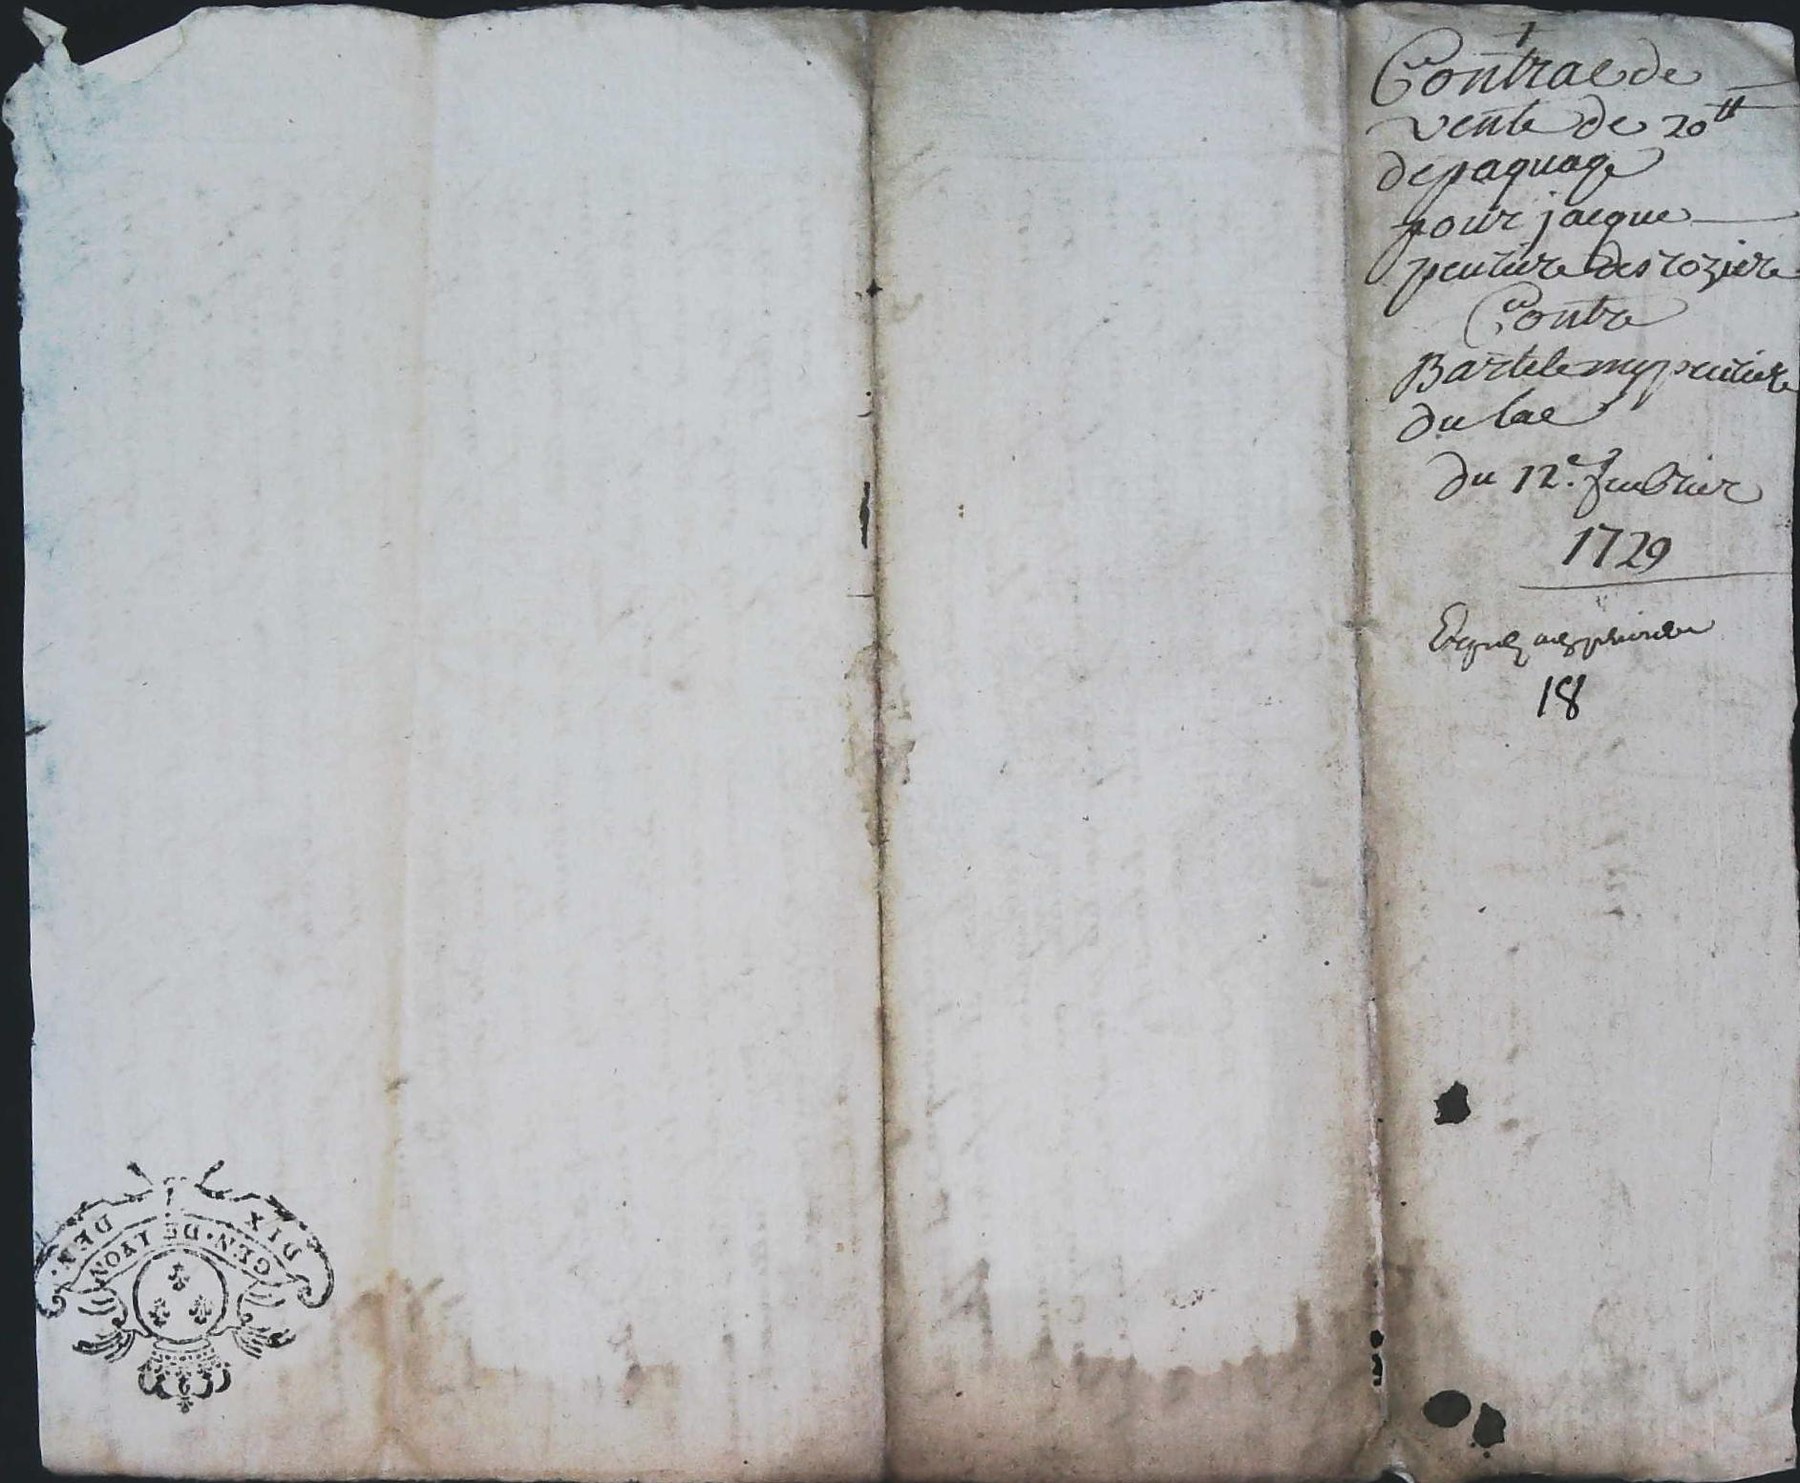 Contrac de
vente de 20 tt
depaquage
pour jacque
peurière des rozière
Contre
Bartelemy peurière
du lac
du 12e. feubrier
1729
18
DIX DEN.
GEN. DE LYON